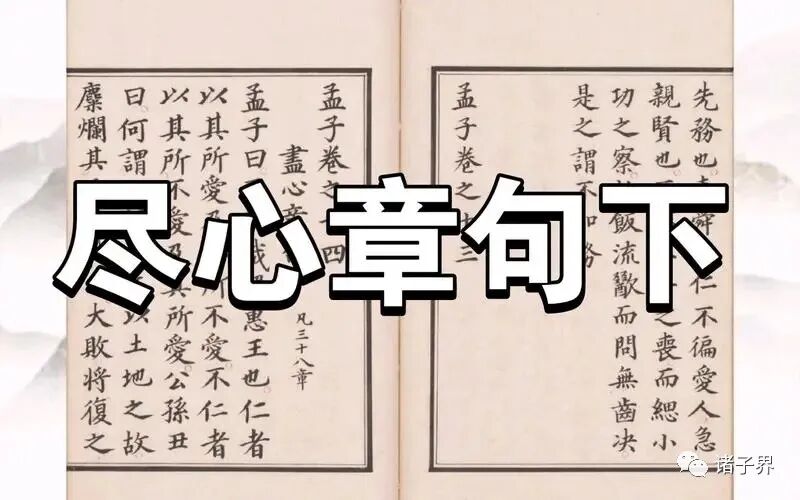 尽心章句下
先務也 舜 仁不徧愛人急
親賢也 之喪而緦小
功之察 飯流歠而問無齒决
是之謂不知務
孟子卷之十三
孟子卷之十四
盡心章
凡三十八章
孟子曰 哉 惠王也仁者
以其所愛及 所不愛不仁者
以其所不愛及其所愛公孫丑
曰何謂 以土地之故
糜爛其 大敗將復之
诸子界